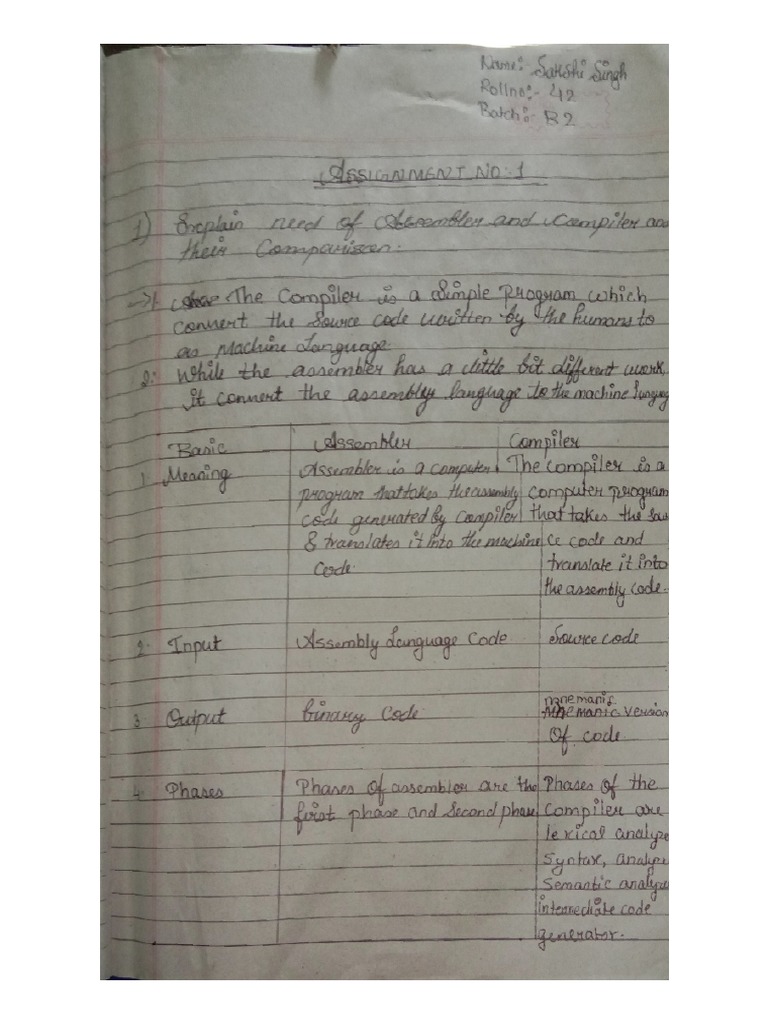 Name:- Sakshi Singh
Rollno:- 42
Batch:- B2
ASSIGNMENT NO:-1
1) Explain need of Assembler and Compiler and
their Comparison.
→1. The Compiler is a Simple program which
convert the source code written by the humans to
as Machine Language
2: While the assembler has a little bit different work,
it convert the assembly language to the machine languag
Basic Assembler Compiler
1. Meaning Assembler is a computer The compiler is a
program that takes the assembly computer program
code generated by Compiler that takes the Sou
& translates it into the machine ce code and
Code. translate it into
the assembly code.
2. Input Assembly Language Code Source code
mnemanic
3. Output binary Code Mnemanic version
Of code.
4. Phases Phases of assembler are the Phases of the
first phase and Second phase Compiler are
lexical analyze
Syntax, analyze
Semantic analyze
intermediate code
generator.